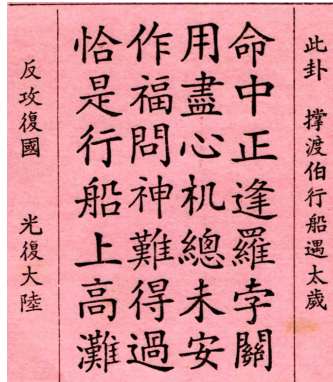 此卦 撐渡伯行船遇太歲
命中正逢羅孛關
用盡心机總未安
作福問神難得過
恰是行船上高灘
反攻復國 光復大陸